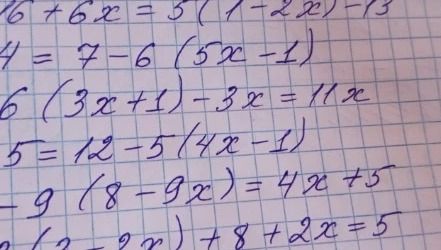 16 + 6x = 5(1 - 2x) - 13
4 = 7 - 6 (5x - 1)
6 (3x + 1) - 3x = 11x
5 = 12 - 5 (4x - 1)
- 9 (8 - 9x) = 4x + 5
- 2x) + 8 + 2x = 5